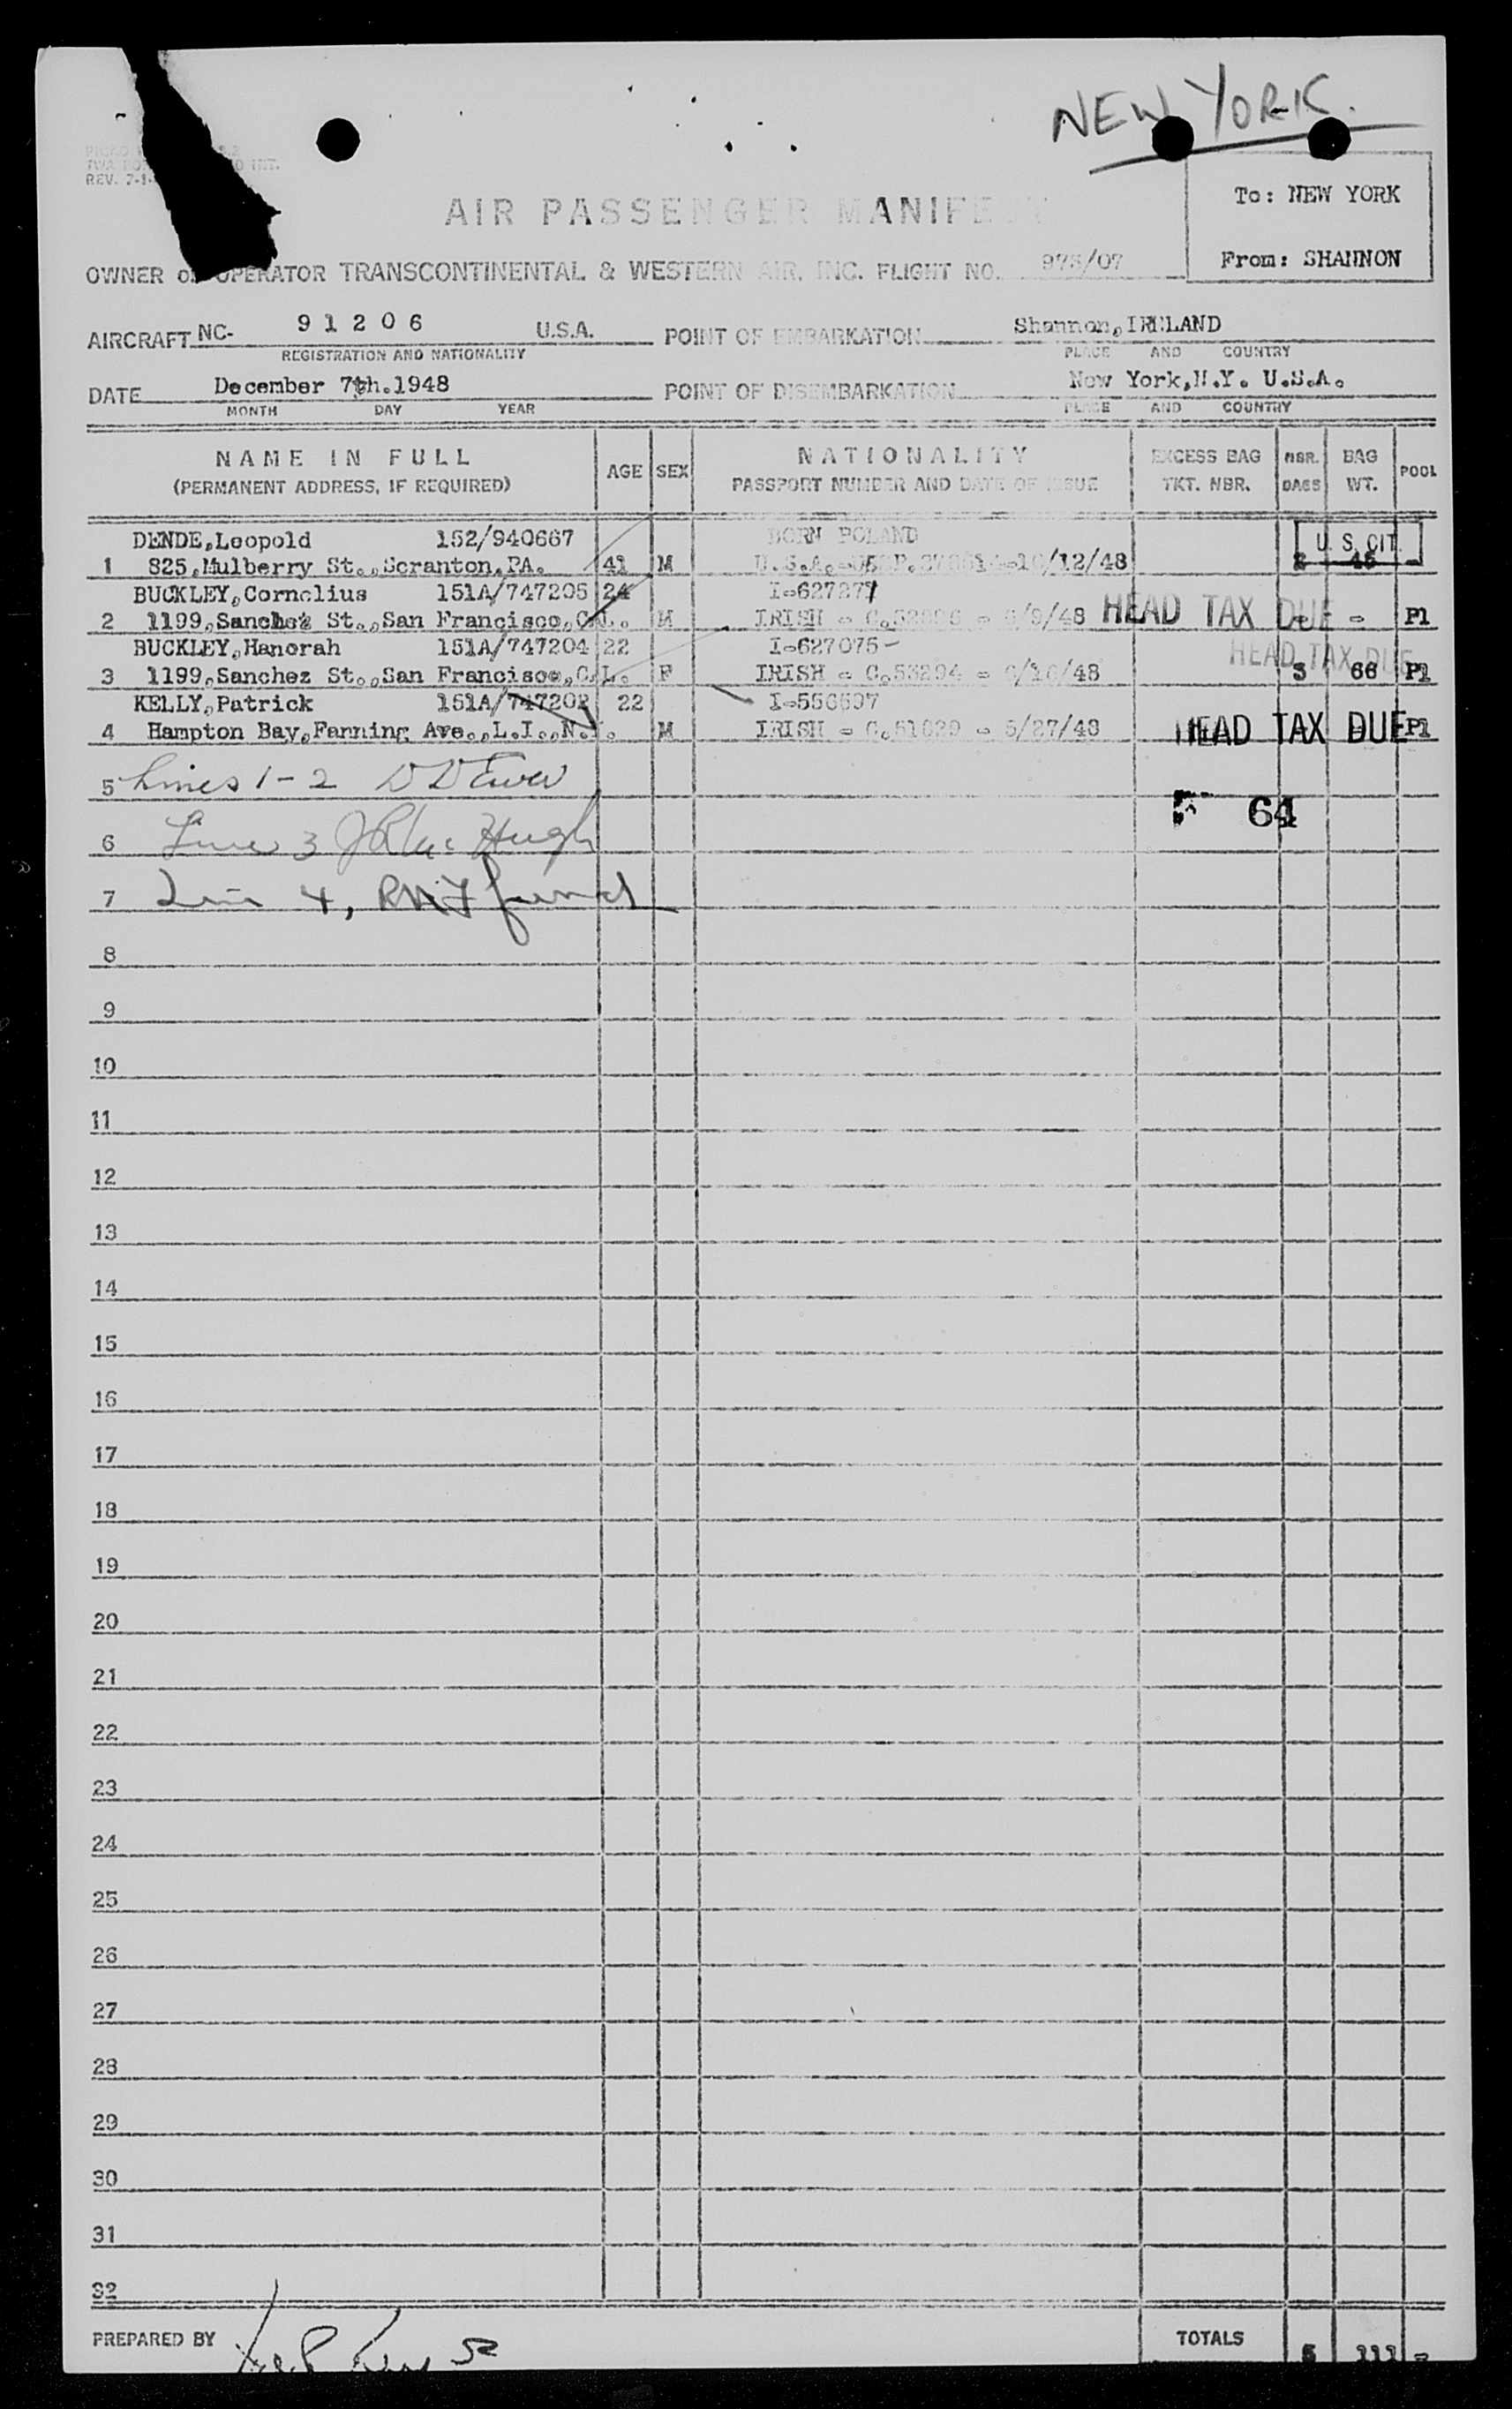 NEW YORK.
REV. 7-1-
To: NEW YORK
AIR PASSENGER MANIFE
From: SHANNON
OWNER OPERATOR TRANSCONTINENTAL & WESTERN AIR, INC. FLIGHT NO.
AIRCRAFT NC- 91206 U.S.A. POINT OF EMBARKATION Shannon, IRELAND
REGISTRATION AND NATIONALITY PLACE AND COUNTRY
DATE December 7th.1948 POINT OF DISEMBARKATION New York,N.Y. U.S.A.
MONTH DAY YEAR PLACE AND COUNTRY
NAME IN FULL AGE SEX NATIONALITY EXCESS BAG NBR. BAG POOL
(PERMANENT ADDRESS, IF REQUIRED) PASSPORT NUMBER AND DATE OF ISSUE TKT. NBR. BAGS WT.
DENDE,Leopold 152/940667 BORN POLAND U.S.CIT.
1 825,Mulberry St.,Scranton,PA. 41 M 10/12/48 2 45 -
BUCKLEY,Cornelius 151A/747205 24
2 1199,Sanchez St.,San Francisco,CAL. M IRISH /9/48 HEAD TAX DUE - P1
BUCKLEY,Hanorah 151A/747204 22 I-627075- HEAD TAX DUE
3 1199,Sanchez St.,San Francisco,CAL. F IRISH - C.53294 - /48 3 66 P1
KELLY,Patrick 151A/747202 22
4 Hampton Bay,Fanning Ave.,L.I.,N.Y. M IRISH - C.51629 - 5/27/48 HEAD TAX DUE P1
5 Lines 1-2
64
6 Line 3
7 Line 4,
8
9
10
11
12
13
14
15
16
17
18
19
20
21
22
23
24
25
26
27
28
29
30
31
32
PREPARED BY TOTALS 5 111 -